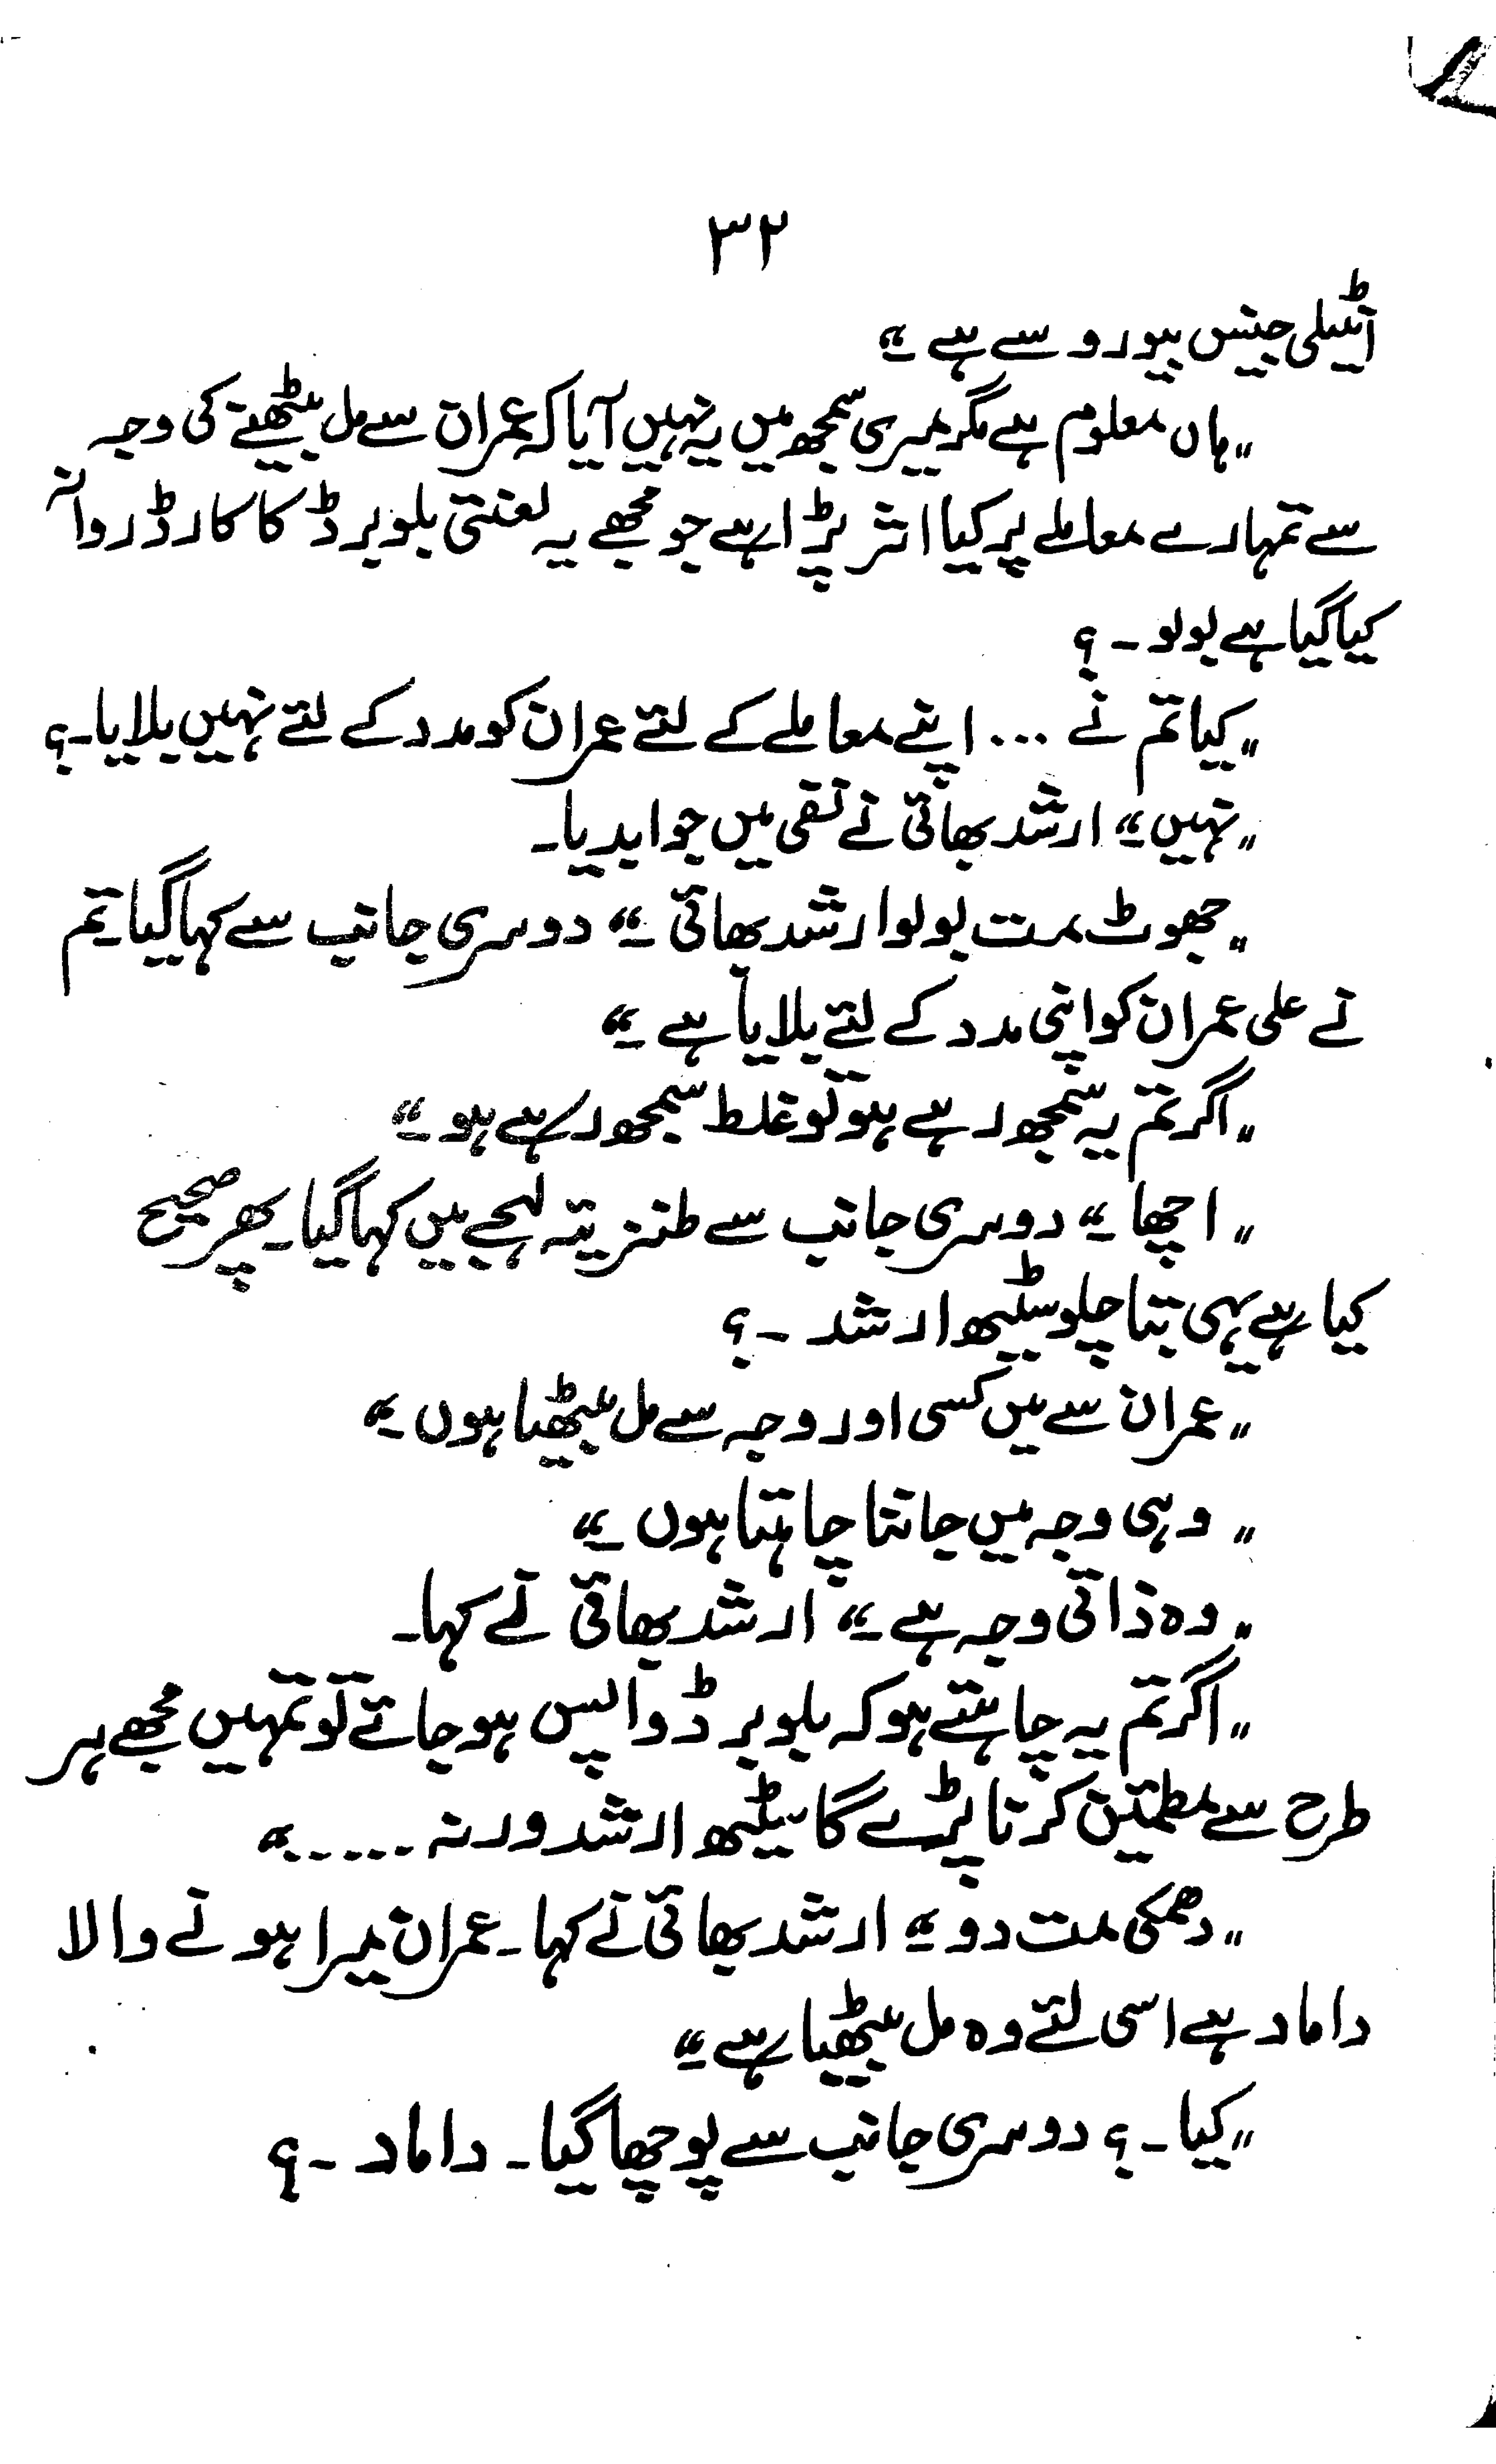 ۳۲
انٹیلی جینس بیورو سے ہے۔"
"ہاں معلوم ہے مگر میری سمجھ میں یہ نہیں آیا کہ عمران سے مل بیٹھنے کی وجہ
سے تمہارے معاملے پر کیا اثر پڑا ہے جو مجھے یہ لعنتی بلو برڈ کا کارڈ روانہ
کیا گیا ہے بولو ۔ ؟
"کیا تم نے ... اپنے معاملے کے لئے عمران کو مدد کے لئے نہیں بلایا۔؟
"نہیں۔" ارشد بھائی نے نفی میں جواب دیا۔
"جھوٹ مت بولو ارشد بھائی ۔" دوسری جانب سے کہا گیا۔ تم
نے علی عمران کو اپنی مدد کے لئے بلایا ہے ۔"
"اگر تم یہ سمجھ رہے ہو تو غلط سمجھ رہے ہو ۔"
"اچھا ۔" دوسری جانب سے طنزیہ لہجے میں کہا گیا۔ پھر صحیح
کیا ہے یہی بتا چلو سیٹھ ارشد ۔ ؟
"عمران سے میں کسی اور وجہ سے مل بیٹھا ہوں ۔"
"وہی وجہ میں جاننا چاہتا ہوں ۔"
"وہ ذاتی وجہ ہے ۔" ارشد بھائی نے کہا۔
"اگر تم یہ چاہتے ہو کہ بلو برڈ واپس ہو جائے تو تمہیں مجھے ہر
طرح سے مطمئن کرنا پڑے گا سیٹھ ارشد ورنہ ......"
"دھمکی مت دو ۔" ارشد بھائی نے کہا۔ عمران میرا ہونے والا
داماد ہے اسی لئے وہ مل بیٹھا ہے ۔"
"کیا ۔ ؟ دوسری جانب سے پوچھا گیا۔ داماد ۔ ؟